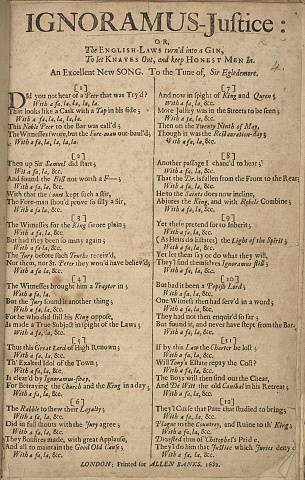 IGNORAMUS-Justice:
OR,
The ENGLISH-LAWS turn'd into a GIN,
To let KNAVES Out, and keep HONEST MEN In.
An Excellent New SONG. To the Tune of, Sir Egledemore.
[1]
Did you not hear of a Peer that was Try'd?
With a fa, la, la, la, la.
That looks like a Cask with a Tap in his side;
With a fa, la, la, la, la, la.
This Noble Peer to the Bar was call'd;
The Witnesses swore, but the Fore-man out-baul'd;
With a fa, la, &c.
[2]
Then up Sir Samuel did start;
With a fa, la, &c.
And found the Bill not worth a F—
With a fa, la, &c.
With that the Court kept such a stir,
The Fore-man shou'd prove so silly a Sir,
With a fa, la, &c.
[3]
The Witnesses for the King swore plain;
With a fa la, &c.
But had they been so many again,
With a fa la, &c.
The Jury before such Truths receiv'd,
Nor them, nor St. Peter they wou'd have believ'd;
With a fa la, &c.
[4]
The Witnesses brought him a Traytor in;
With a fa la.
But the Jury found it another thing;
With a fa la, &c.
For he who did still his King oppose,
Is made a True Subject in spight of the Laws;
With a fa la, &c.
[5]
Thus this Great Lord of High Renown,
With a fa la, &c.
Th' Exalted Idol of the Town;
With a fa la, &c.
Is clear'd by Ignoramus-sway,
For Betraying the Church and the King in a day,
With a fa la, &c.
[6]
The Rabble to shew their Loyalty;
With a fa la, &c.
Did in full shouts with the Jury agree;
With a fa la, &c.
They Bonfires made, with great Applause,
And all to maintain the Good Old Cause;
With a fa la, &c.
[7]
And now in spight of King and Queen;
With a fa la, &c.
More Jollity was in the Streets to be seen;
With a fa la, &c.
Then on the Twenty Ninth of May,
Though it was the Restauration-day;
With a fa la, &c.
[8]
Another passage I chanc'd to hear;
With a fa la, &c.
That the Dr. is fallen from the Front to the Rear;
With a fa la, &c.
He to the Saints does now incline,
Abjures the King, and with Rebels Combine;
With a fa la, &c.
[9]
Yet these pretend for to Inherit;
With a fa la, &c.
(As Heirs do Estates) the Light of the Spirit;
With a fa la, &c.
Yet let them say or do what they will,
They'l find themselves Ignoramus still;
With a fa la, &c.
[10]
But had it been a Popish Lord;
With a fa la, &c.
One Witness then had serv'd in a word;
With a fa la, &c.
They had not then enquir'd so far;
But found it, and never have stept from the Bar;
With a fa la, &c.
[11]
If by this Law the Charter be lost;
With a fa la, &c.
Will Tony's Estate repay the Cost?
With a fa la, &c.
The Boys will then find out the Cheat,
And De Witt the old Cannibal in his Retreat;
With a fa la, &c.
[12]
They'l Curse that Pate that studied to bring;
With a fa la, &c.
Plague to the Country, and Ruine to th' King;
With a fa la, &c.
of Chitophel's Pride,
They'l do him that Justice which Juries deny;
With a fa la, &c.
LONDON; Printed for ALLEN BANKS, 1682.